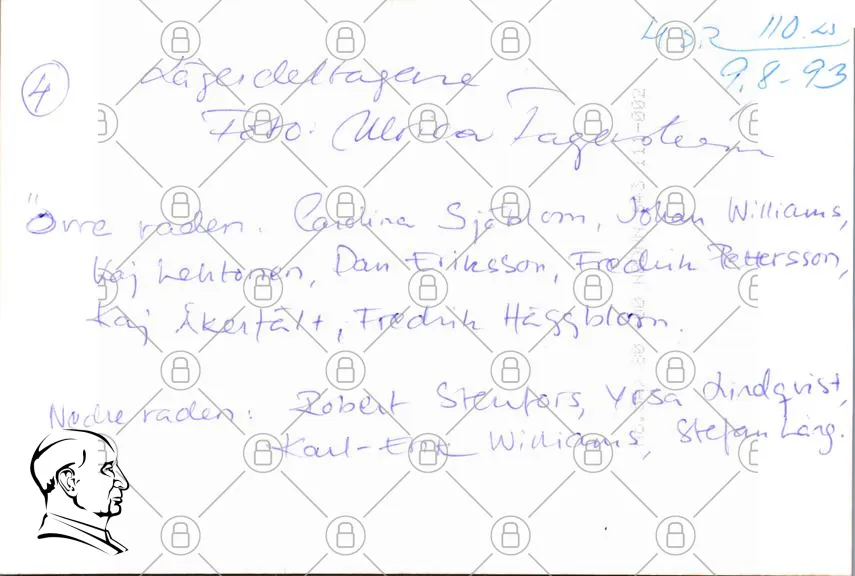 110
9.8-93
4
Lägerdeltagare
Foto: Ulrica Fagerström
Övre raden: Carolina Sjöblom, Johan Williams,
Kaj Lehtonen, Dan Eriksson, Fredrik Pettersson,
Kaj Åkerfält, Fredrik Häggblom.
Nedre raden: Robert Stenfors, Yrsa Lindqvist,
Karl-Erik Williams, Stefan Lång.